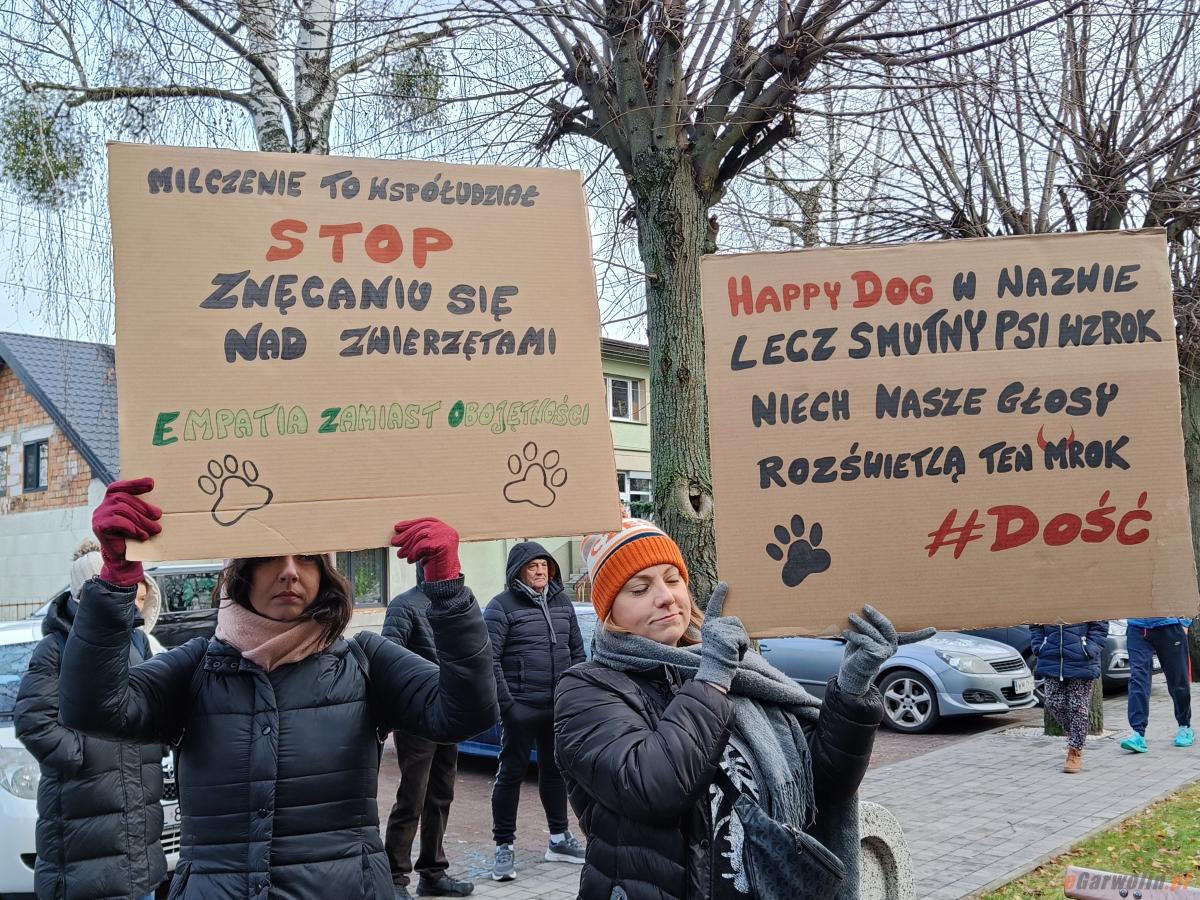 MILCZENIE TO WSPÓŁUDZIAŁ
STOP
ZNĘCANIU SIĘ
NAD ZWIERZĘTAMI
EMPATIA ZAMIAST OBOJĘTNOŚCI
HAPPY DOG W NAZWIE
LECZ SMUTNY PSI WZROK
NIECH NASZE GŁOSY
ROZŚWIETLĄ TEN MROK
#DOŚĆ
eGarwolin.pl